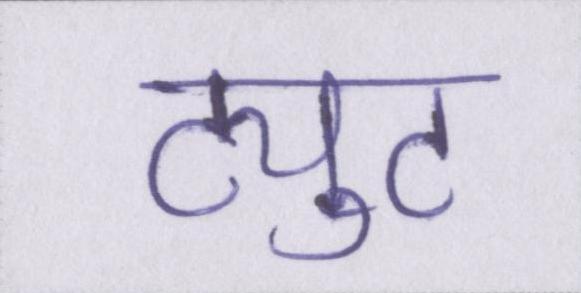 ट्युट